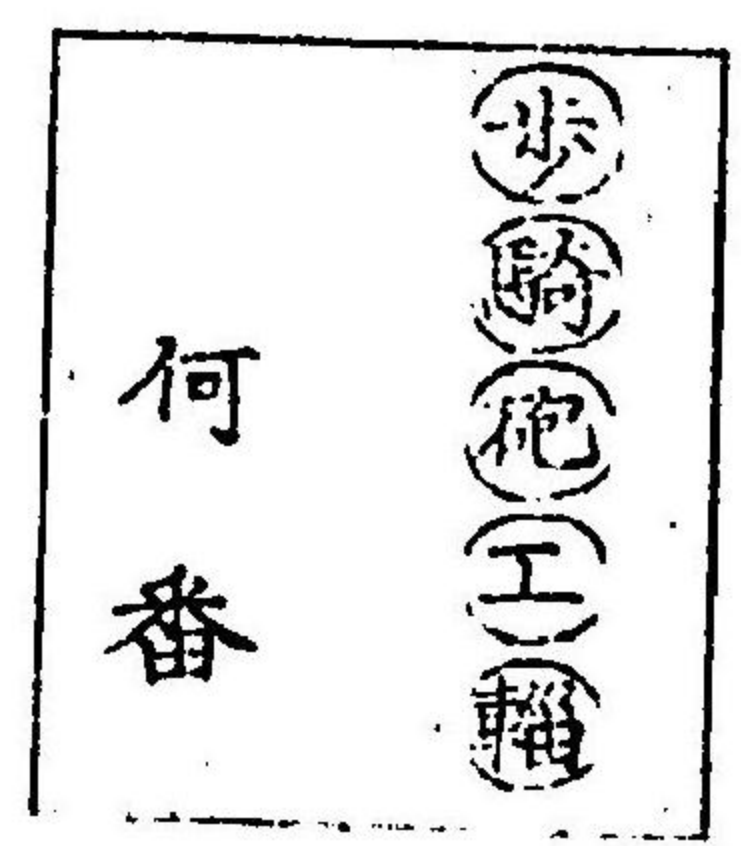 歩騎砲工輜
何番